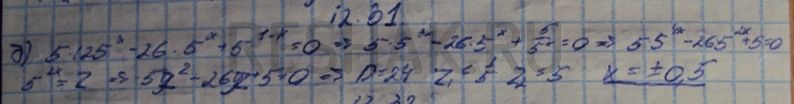 12.31
б) 5·125ˣ - 26·5ˣ + 5¹⁻ˣ = 0 => 5·5³ˣ - 26·5ˣ + 5/5ˣ = 0 => 5·5⁴ˣ - 26 5²ˣ + 5 = 0
5²ˣ = z => 5z² - 26z + 5 = 0 => D = 24 z₁ = 1/5 z₂ = 5 x = ±0,5